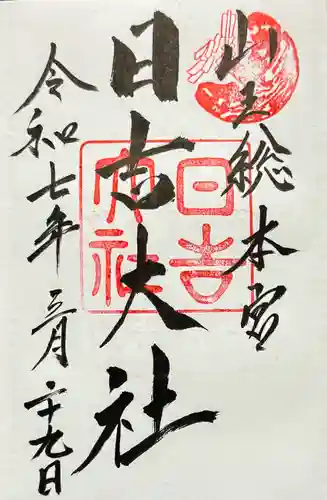 山王総本宮
日吉大社
日吉大社
令和七年三月二十九日